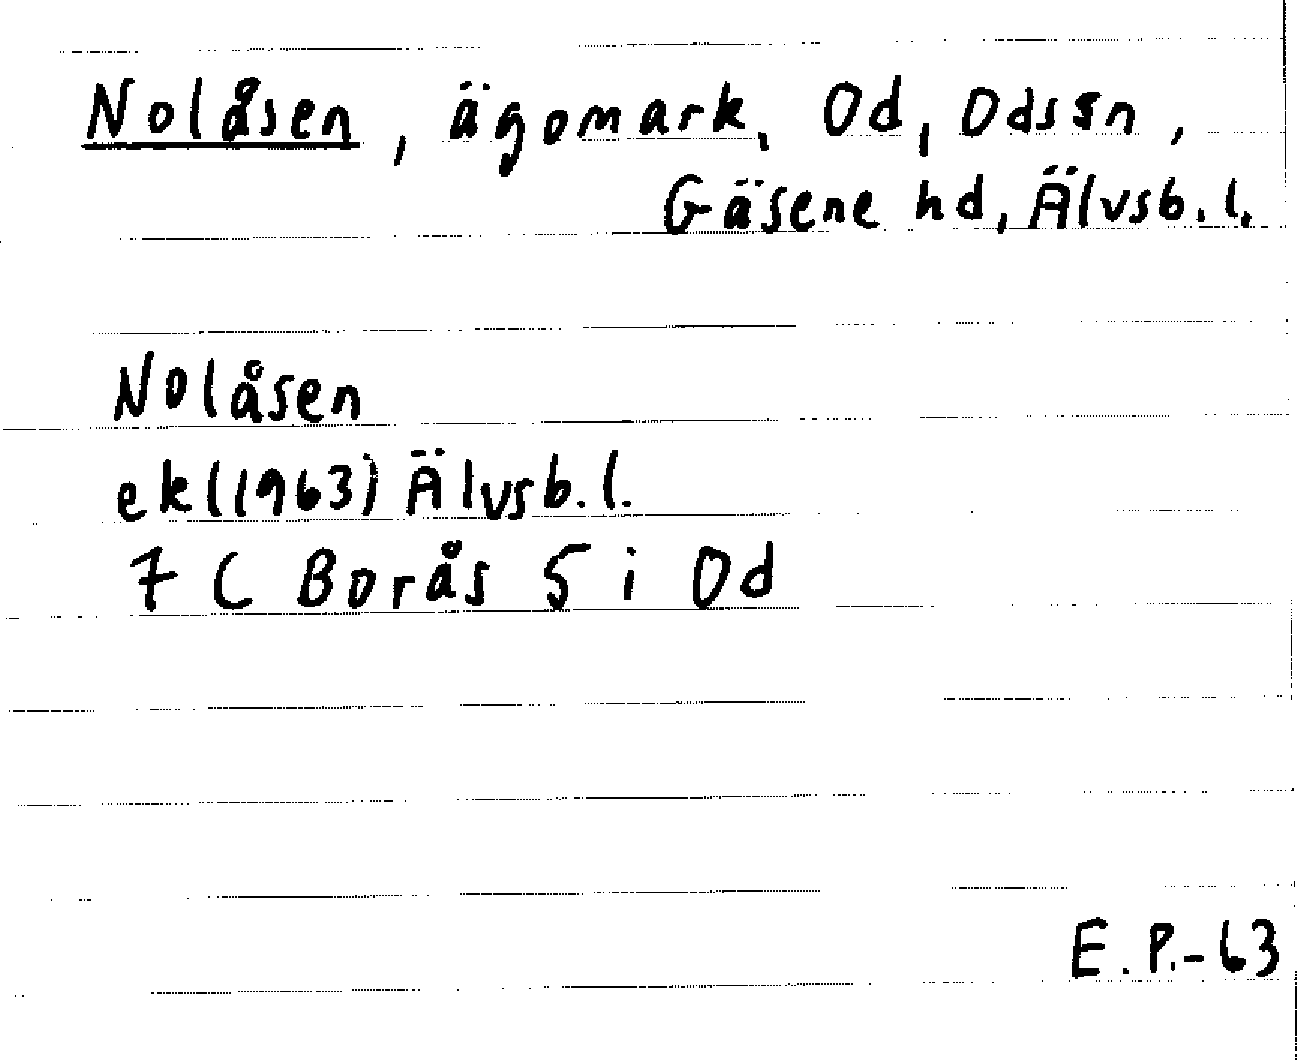 Nolåsen, ägomark, Od, Ods sn,
Gäsene hd, Älvsb. l.
Nolåsen
ek (1963) Älvsb. l.
7 C Borås 5 i Od
E. P. - 63